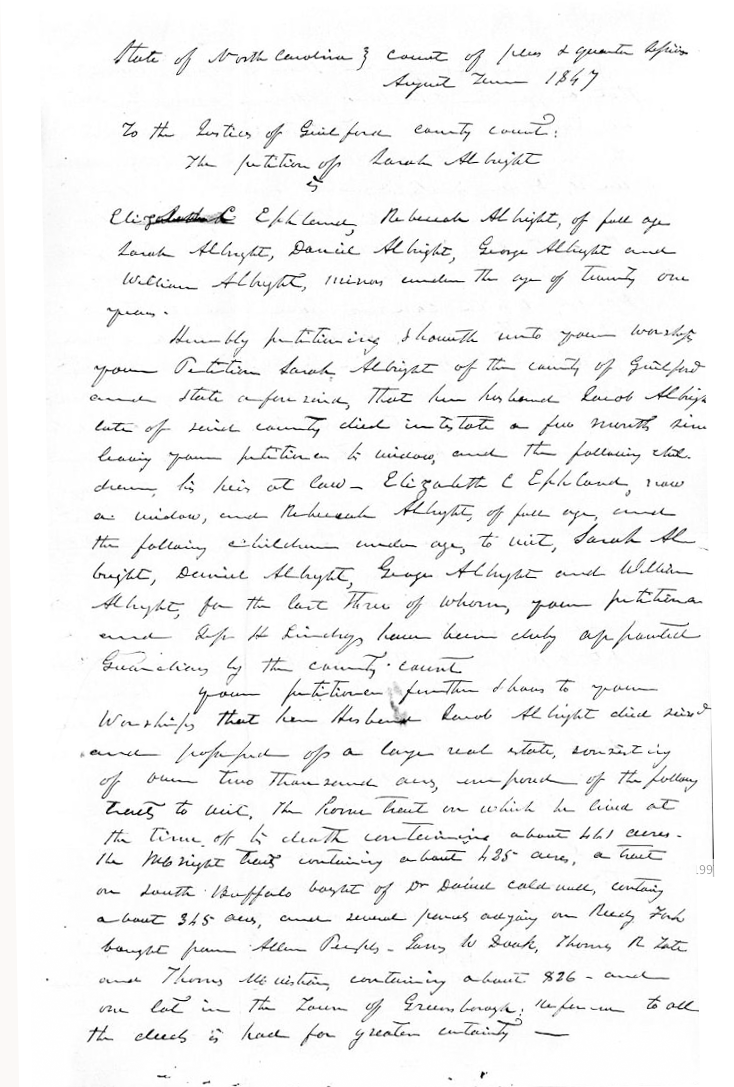 State of North Carolina } Court of pleas & quarter Sessions
August Term 1847
To the Justices of Guilford county court:
The petition of Sarah Albright
&
Eliz C Ephland, Rebecah Albright, of full age
Sarah Albright, Daniel Albright, George Albright and
William Albright, minors under the age of twenty one
years.
Humbly petitioning sheweth unto your worships
your Petition Sarah Albright of the county of Guilford
and State aforesaid, That her husband Jacob Albrigh
late of said county died intestate a few months since
leaving your petitioner his widow, and the following chil-
dren, his heirs at law - Elizabeth C Ephland, now
a widow, and Rebecah Albright, of full age, and
the following children under age, to wit, Sarah Al-
bright, Daniel Albright, George Albright and William
Albright, for the last three of whom, your petitioner
and H Lindsay have been duly appointed
Guardians by the county court
your petitioner further shows to your
Worships that her Husband Jacob Albright died seizd
and possessed of a large real estate, consisting
of over two thousand acres, composed of the following
tracts to wit, the home tract on which he lived at
the time of his death containing about 461 acres -
the McNight tract containing about 425 acres, a tract
on South Buffalo bought of Dr Daniel Caldwell, containg
about 345 acres, and several parcels adjoing on Reedy Fork
bought from Allen Peeples - W Doak, Thomas R Tate
and Thomas McCuistian, containing about 826 - and
one lot in the Town of Greensborough; Reference to all
the deeds is had for greater certainty —
199